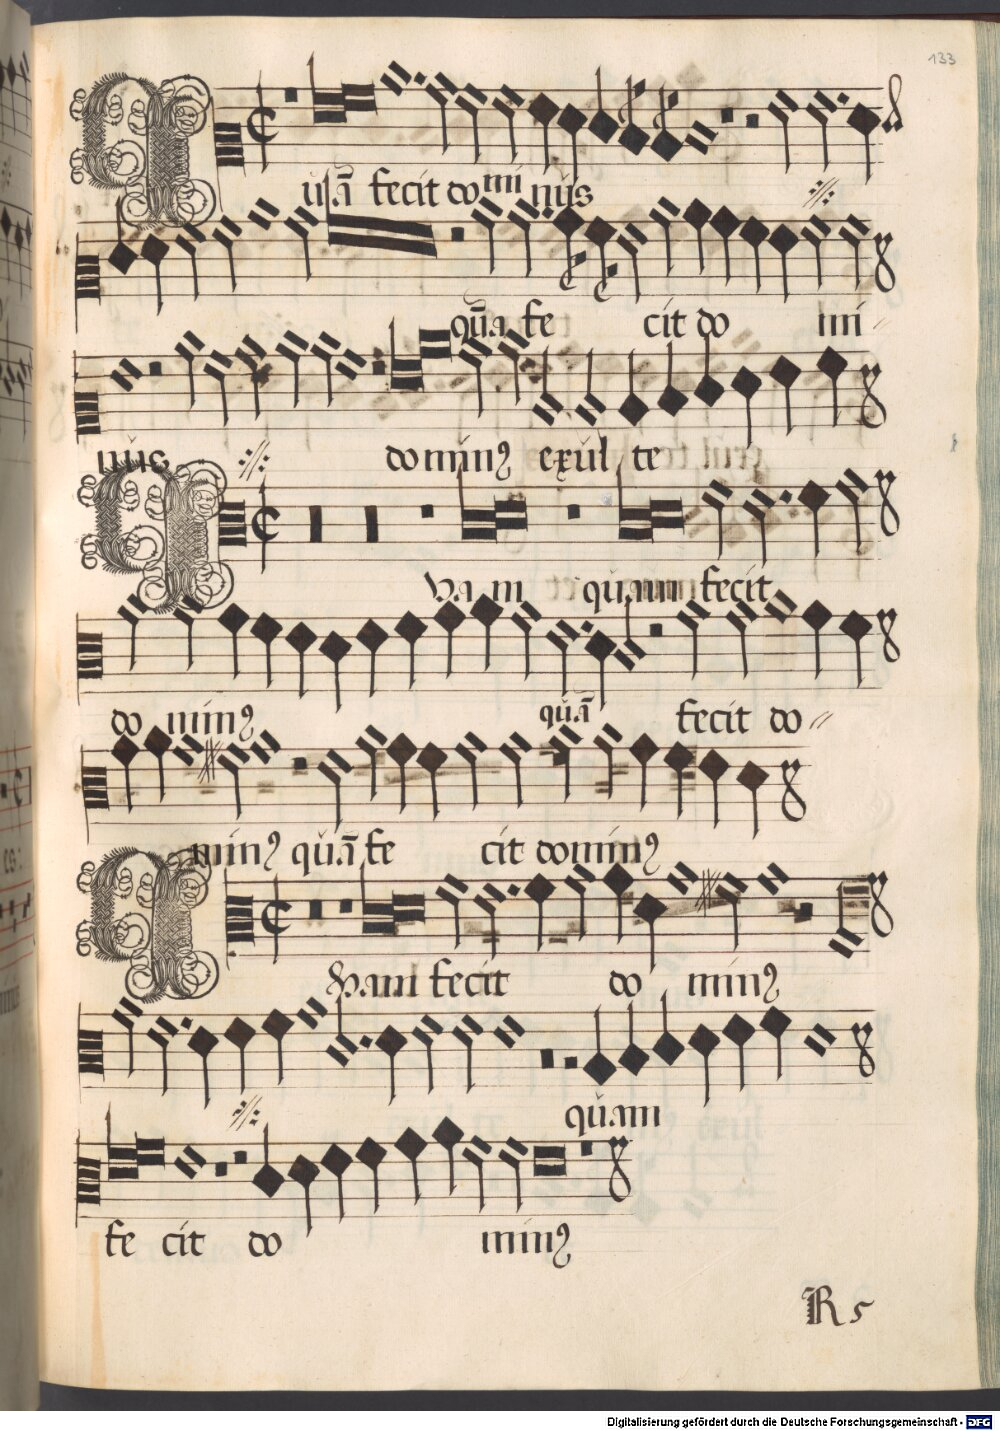 133
usā fecit dominus
quā fe cit do mi
nus dominꝰ exul te
ham quam fecit
do minꝰ quā fecit do
minꝰ quā fe cit dominꝰ
ham fecit do minꝰ
quam
fe cit do minꝰ
R 5
Digitalisierung gefördert durch die Deutsche Forschungsgemeinschaft - DFG